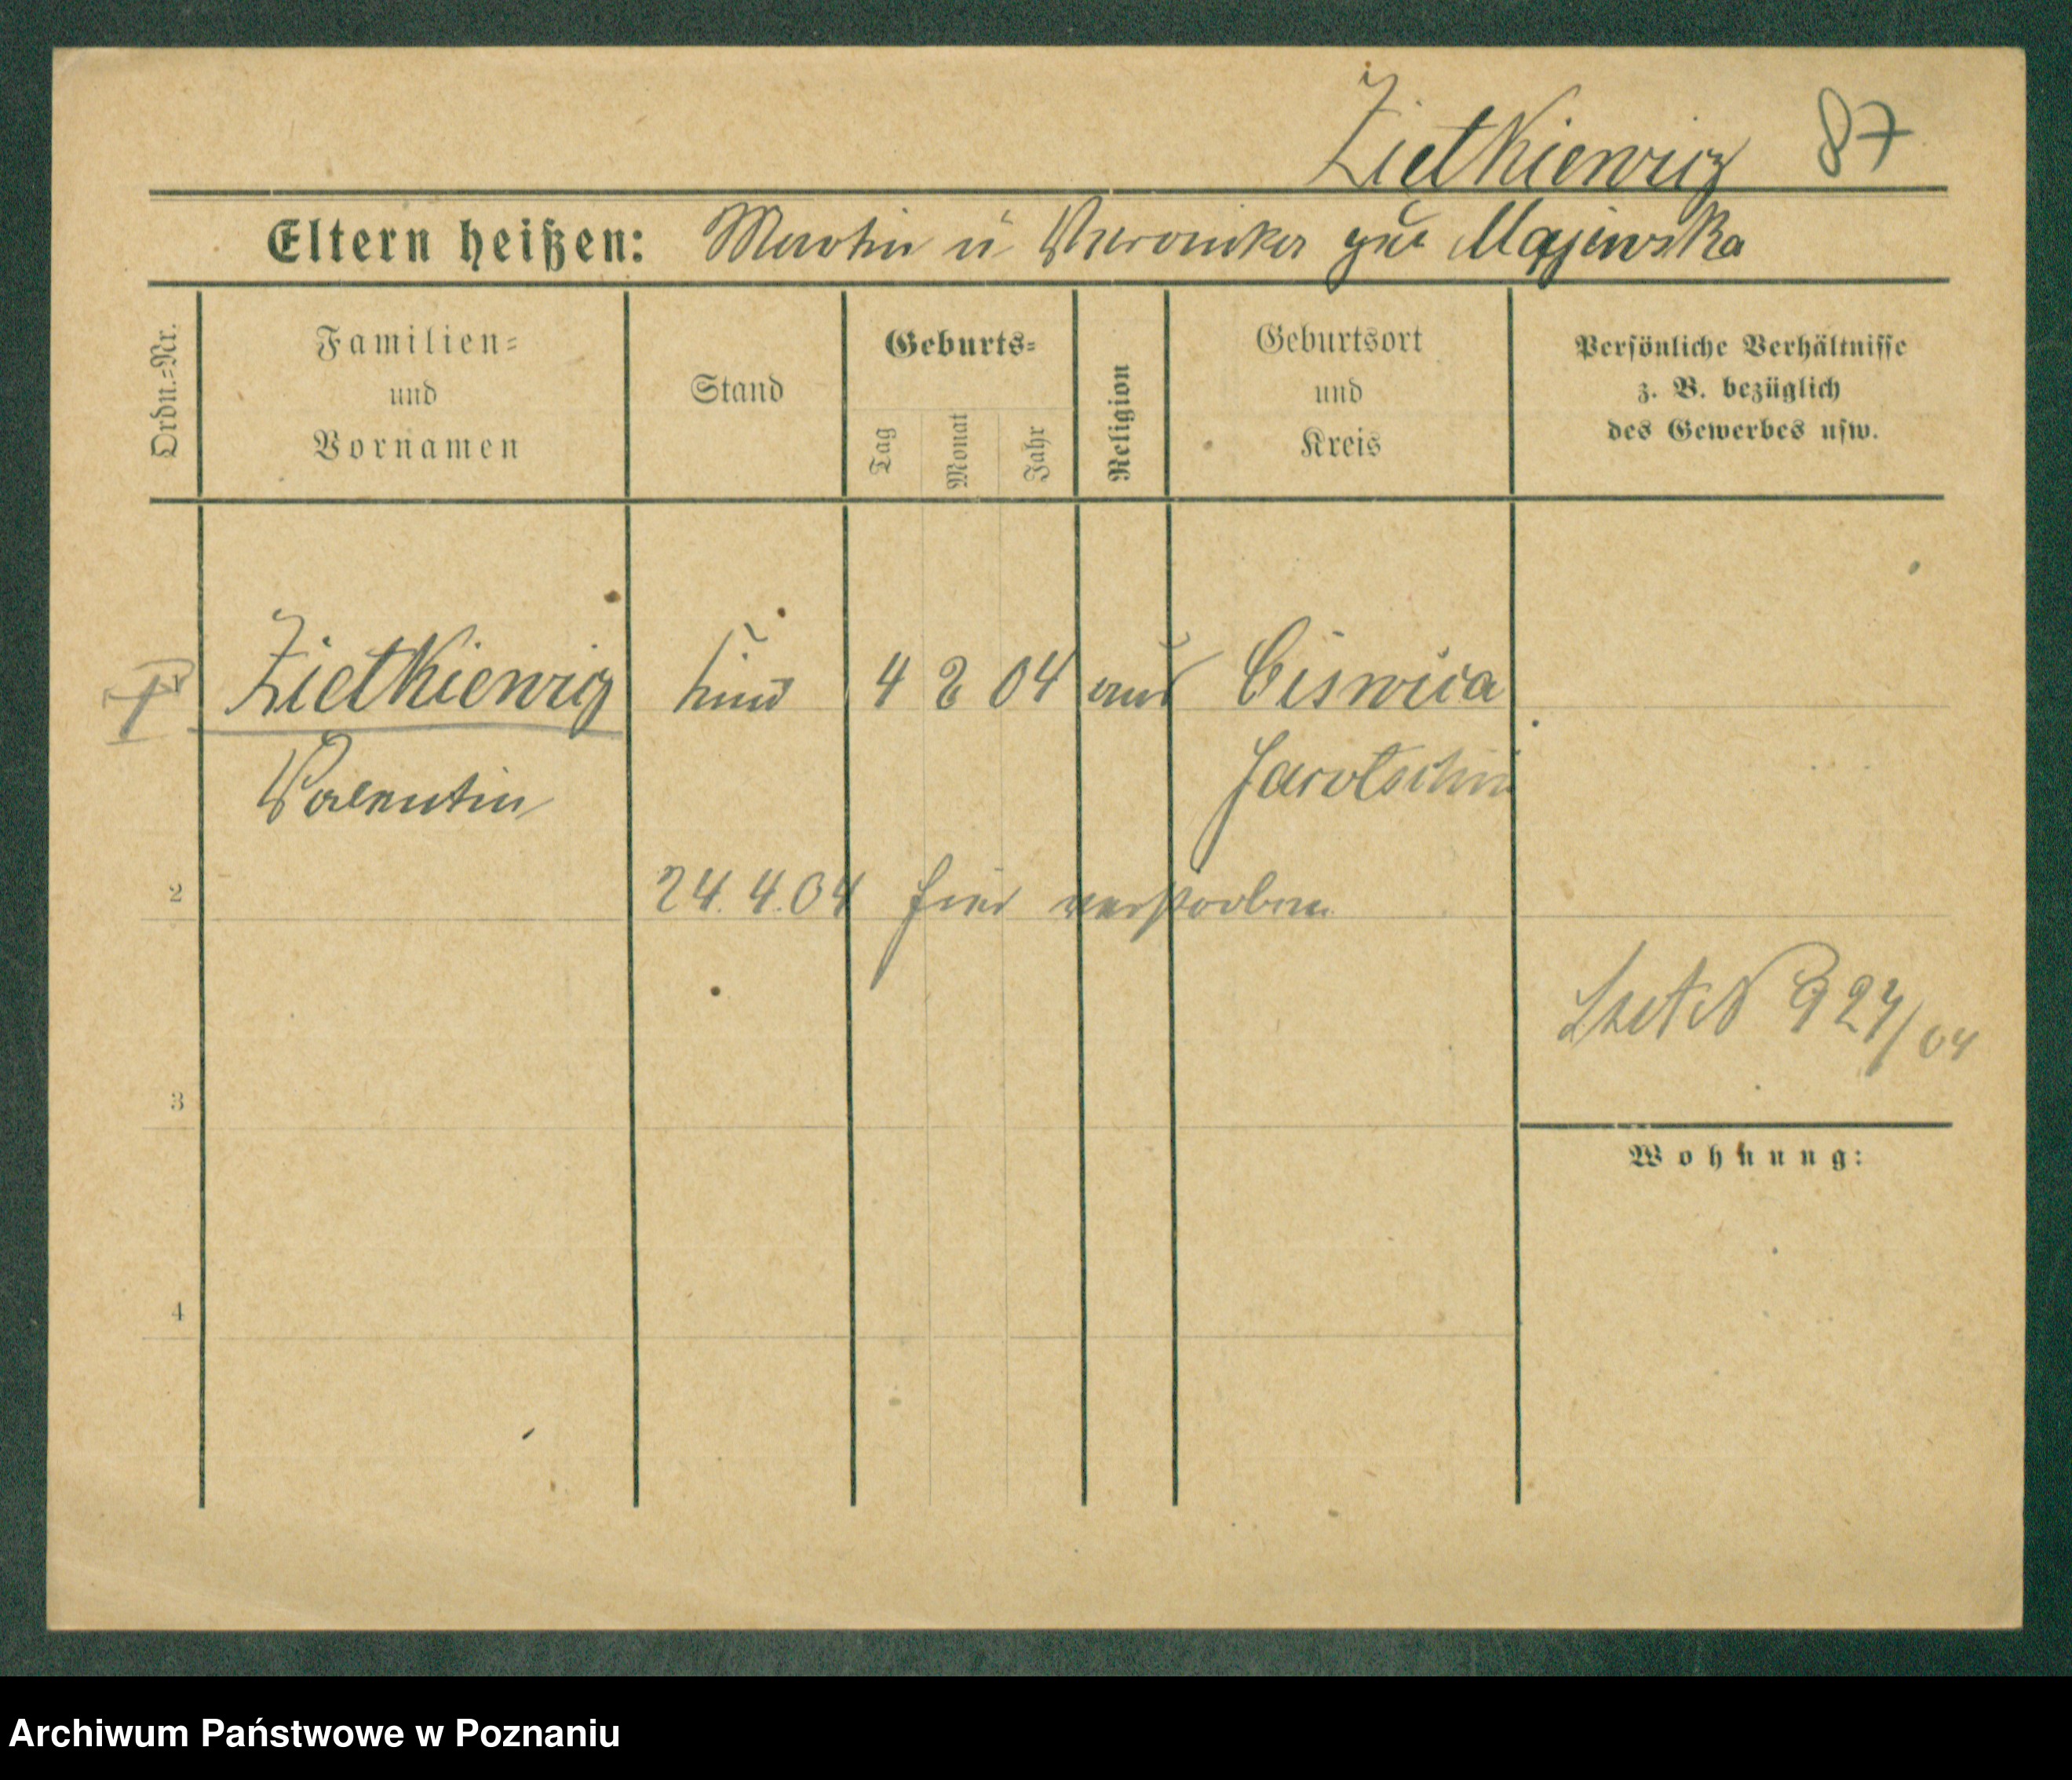 Zietkiewicz 87
Eltern heißen: Martin u Veronika geb Majewska
Ordn.=Nr.
Familien=
und
Vornamen
Stand
Geburts=
Tag
Monat
Jahr
Religion
Geburtsort
und
Kreis
Persönliche Verhältnisse
z. B. bezüglich
des Gewerbes usw.
Zietkiewicz 4 2 04 Ciswica
Valentin Jarotschin
2
24.4.04 hier verstorben
927/04
3
Wohnung:
4
Archiwum Państwowe w Poznaniu